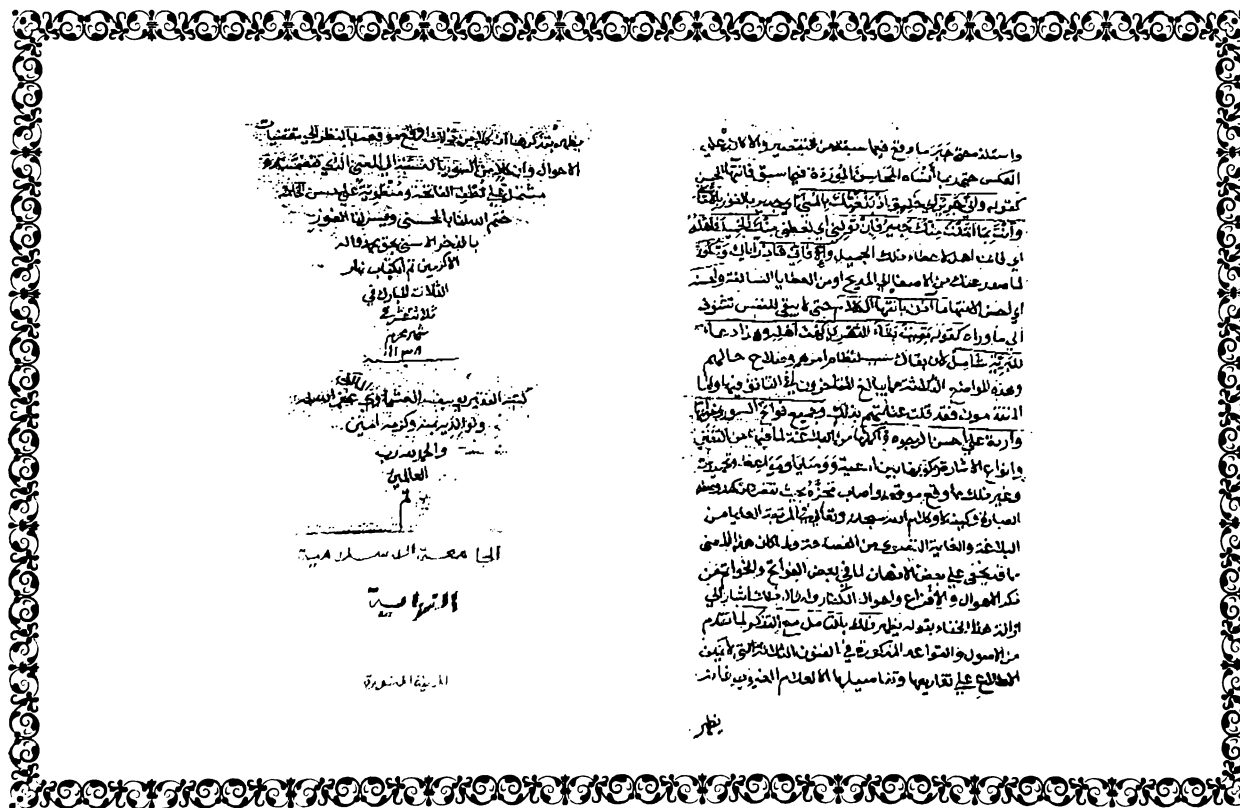 واستلذه حتى جبر ما وقع فيما سبقه من التقصير والا كان على
العكس حتى ربما أنساه المحاسن الموردة فيما سبق فانتهاء الحسن
كقوله واني جدير اذ بلغتك بالمنى أي جدير بالفوز بالأماني
وأنت بما أملت منك جدير فإن تولني أي تعطني منك الجميل فأهله
أي فانت اهل لاعطاء ذلك الجميل وإلا فاني عاذر اياك وشكور
لما صدر عنك من الاصغاء الى المديح او من العطايا السالفة واحسنه
أي احسن الانتهاء ما آذن بانتهاء الكلام حتى لا يبقى للنفس تشوق
الى ما وراءه كقوله بقيت بقاء الدهر يا كهف أهله وهذا دعاء
للبرية شامل لان بقاك سبب لنظام امرهم وصلاح حالهم
وهذه المواضع الثلاثة مما يبالغ المتأخرون في التانق فيها واما
المتقدمون فقد قلت عنايتهم بذلك وجميع فواتح السور وخواتمها
واردة على أحسن الوجوه واكملها من البلاغة لما فيها من التفنن
وانواع الاشارة وكونها بين ادعية ووصايا ومواعظ وتحميدات
وغير ذلك مما وقع موقعه واصاب محزه بحيث تقصر عن كنه وصفه
العبارة وكيف لا وكلام الله سبحانه وتعالى في المرتبة العليا من
البلاغة والغاية القصوى من الفصاحة ولما كان هذا المعنى
مما قد يخفى على بعض الاذهان لما في بعض الفواتح والخواتم من
ذكر الاهوال والأفزاع واحوال الكفار وامثال ذلك أشار إلى
ازالة هذا الخفاء بقوله يظهر ذلك بالتأمل مع التذكر لما تقدم
من الاصول والقواعد المذكورة في الفنون الثلاثة التي لا يمكن
الاطلاع على تفاريعها وتفاصيلها الا لعلام الغيوب فانه
يظهر
يظهر بتذكرها أن كلا من ذلك وقع موقعه بالنظر الى مقتضيات
الاحوال وان كلا من السور بالنسبة الى المعنى الذي تتضمنه
مشتمل على لطف الفاتحة ومنطوية على حسن الخاتمة
ختم الله لنا بالحسنى ويسر لنا الفوز
بالذخر الاسنى بحق محمد واله
الاكرمين تم الكتاب نهار
الثلاث المبارك في
ثلاثة عشر
شهر محرم
١١٣٨
كتبه الفقير يوسف المالكي غفر الله له
ولوالديه بمنه وكرمه امين
والحمد لله رب
العالمين
تم
الجامعة الاسلامية
المدينة المنورة